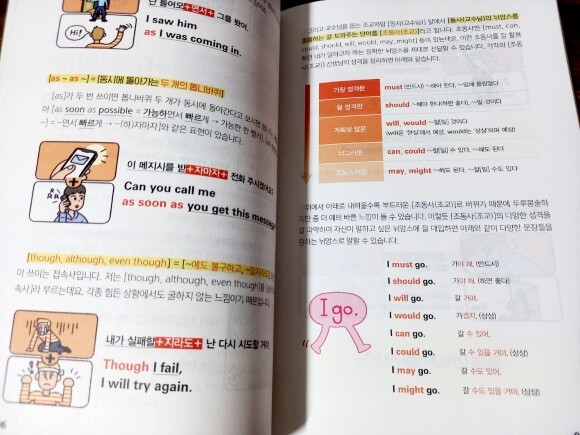 난 들어오+면서+ 그를 봤어.
I saw him
as I was coming in.
Hi!
[as ~ as ~] = [동시에 돌아가는 두 개의 톱니바퀴]
[as]가 두 번 쓰이면 톱니바퀴 두 개가 동시에 돌아간다고 보시면
어 [as soon as possible = 가능하면서 빠르게 → 가능한 한 빨리],
~] = ~면서 빠르게 → ~(하)자마자]와 같은 표현이 있습니다.
이 메시지를 받+자마자+ 전화 주시겠어요?
Can you call me
as soon as you get this message
[though, although, even though] = [~에도 불구하고, ~일지라도]
이 쓰이는 접속사입니다. 저는 [though, although, even though]를
속사]라 부르는데요. 각종 힘든 상황에서도 굴하지 않는 느낌이기 때문입니다.
내가 실패할+지라도+ 난 다시 시도할 거야.
Though I fail,
I will try again.
그리고 교수님을 돕는 조교처럼 [동사(교수님)] 앞에서 [동사(교수님)의 뉘앙스를
조절하는 걸 도와주는 단어]를 [조동사(조교)]라고 합니다. 조동사엔 [must, can,
could, should, will, would, may, might] 등이 있는데요. 이런 조동사를 잘 활용
하면 내가 말하고자 하는 정확한 뉘앙스를 제대로 전달할 수 있습니다. 각각의
[조동사(조교)] 선생님의 성격을 정리하면 아래와 같습니다.
가장 엄격한 must (반드시) ~해야 한다, ~임에 틀림없다
덜 엄격한 should ~해야 한다(하면 좋다), ~일 것이다
계획성 많은 will, would ~할[일] 것이다
(will은 '현실'에서 예상, would는 '상상'하며 예상)
너그러운 can, could ~할[일] 수 있다, ~해도 된다
may, might ~해도 된다, ~할[일] 수도 있다
위에서 아래로 내려올수록 부드러운 [조동사(조교)]로 바뀌기 때문에 두루뭉술하
지만 좀 더 예의 바른 느낌이 들 수 있습니다. 이렇듯 [조동사(조교)]의 다양한 성격을
잘 파악하여 자신이 말하고 싶은 뉘앙스에 잘 대입하면 아래와 같이 다양한 문장들을
원하는 뉘앙스로 말할 수 있습니다.
I go.
I must go. 가야 해. (반드시)
I should go. 가야 해. (하면 좋다)
I will go. 갈 거야.
I would go. 가겠지. (상상)
I can go. 갈 수 있어.
I could go. 갈 수 있을 거야. (상상)
I may go. 갈 수도 있어.
I might go. 갈 수도 있을 거야. (상상)